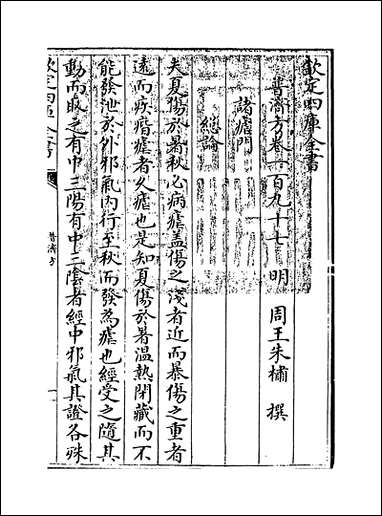 欽定四庫全書
普濟方卷一百九十七
明 周王朱橚 撰
諸瘧門
總論
夫夏傷於暑秋必病瘧盖傷之淺者近而暴傷之重者
遠而痎瘧者久瘧也是知夏傷於暑溫熱閉藏而不
能發泄於外邪氣内行至秋而發為瘧也經受之隨其
動而取之有中三陽有中三陰者經中邪氣其證各殊
欽定四庫全書
普濟方
一